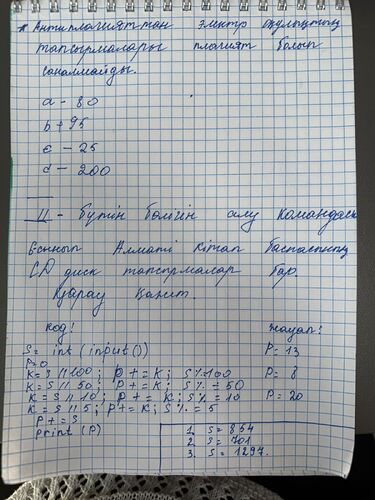 * Антиплагияттан электр оқулықтың
тапсырмалары плагият болып
саналмайды.
a - 80
b + 95
c - 25
d - 200
Ц - бүтін бөлігін алу командасы
Алматы кітап баспасының
CD диск тапсрмалар бар.
Қарау Қажет.
код!
S = int (input())
P=0
K = S // 100; p += K; S%100
K = S // 50; P += K; S% = 50
K = S // 10; P += K; S% = 10
K = S // 5; P += K; S% = 5
P += S
print (P)
жауап!
P = 13
P = 8
P = 20
1. S = 854
2. S = 701
3. S = 1297.